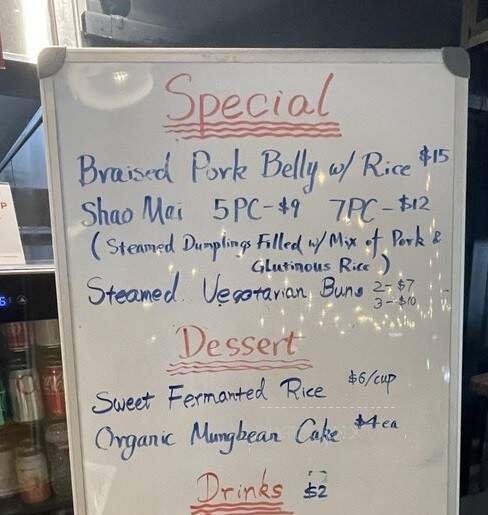 Special
Braised Pork Belly w/ Rice $15
Shao Mai 5PC-$9 7PC-$12
(Steamed Dumplings Filled w/ Mix of Pork &
Glutinous Rice)
Steamed. Vegetarian Buns 2-$7
3-$10
Dessert
Sweet Fermanted Rice $6/cup
Organic Mungbean Cake $4ea
Drinks $2